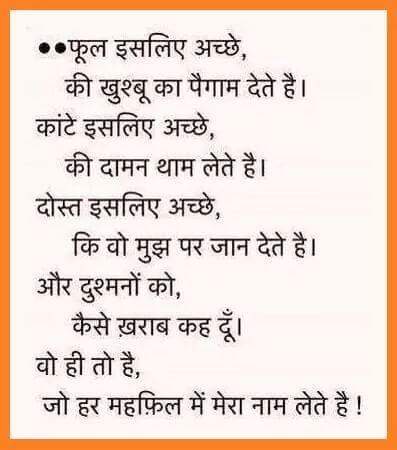 ●●फूल इसलिए अच्छे,
की खुश्बू का पैगाम देते है।
कांटे इसलिए अच्छे,
की दामन थाम लेते है।
दोस्त इसलिए अच्छे,
कि वो मुझ पर जान देते है।
और दुश्मनों को,
कैसे ख़राब कह दूँ।
वो ही तो है,
जो हर महफ़िल में मेरा नाम लेते है !